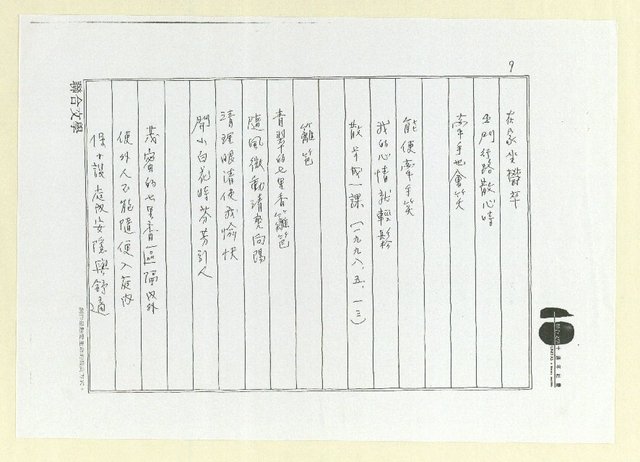 9
在家坐
出門行路散心時
牽手也會笑
能使牽手笑
我的心情就輕鬆
散步成一課（一九九八、五、一三）
籬笆
青翠的七里香籬笆
隨風微動清爽向陽
清理眼清使我愉快
開小白花時芬芳引人
茂密的七里香區隔內外
使外人不能隨便入庭內
保護庭院安隱與舒適
聯合文學